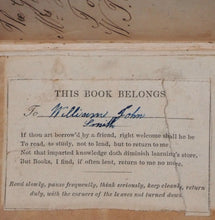 THIS BOOK BELONGS
To William John
Smith
If thou art borrow'd by a friend, right welcome shall he be
To read, to study, not to lend, but to return to me.
Not that imparted knowledge doth diminish learning's store,
But Books, I find, if often lent, return to me no more.
Read slowly, pause frequently, think seriously, keep cleanly, return
duly, with the corners of the leaves not turned down.